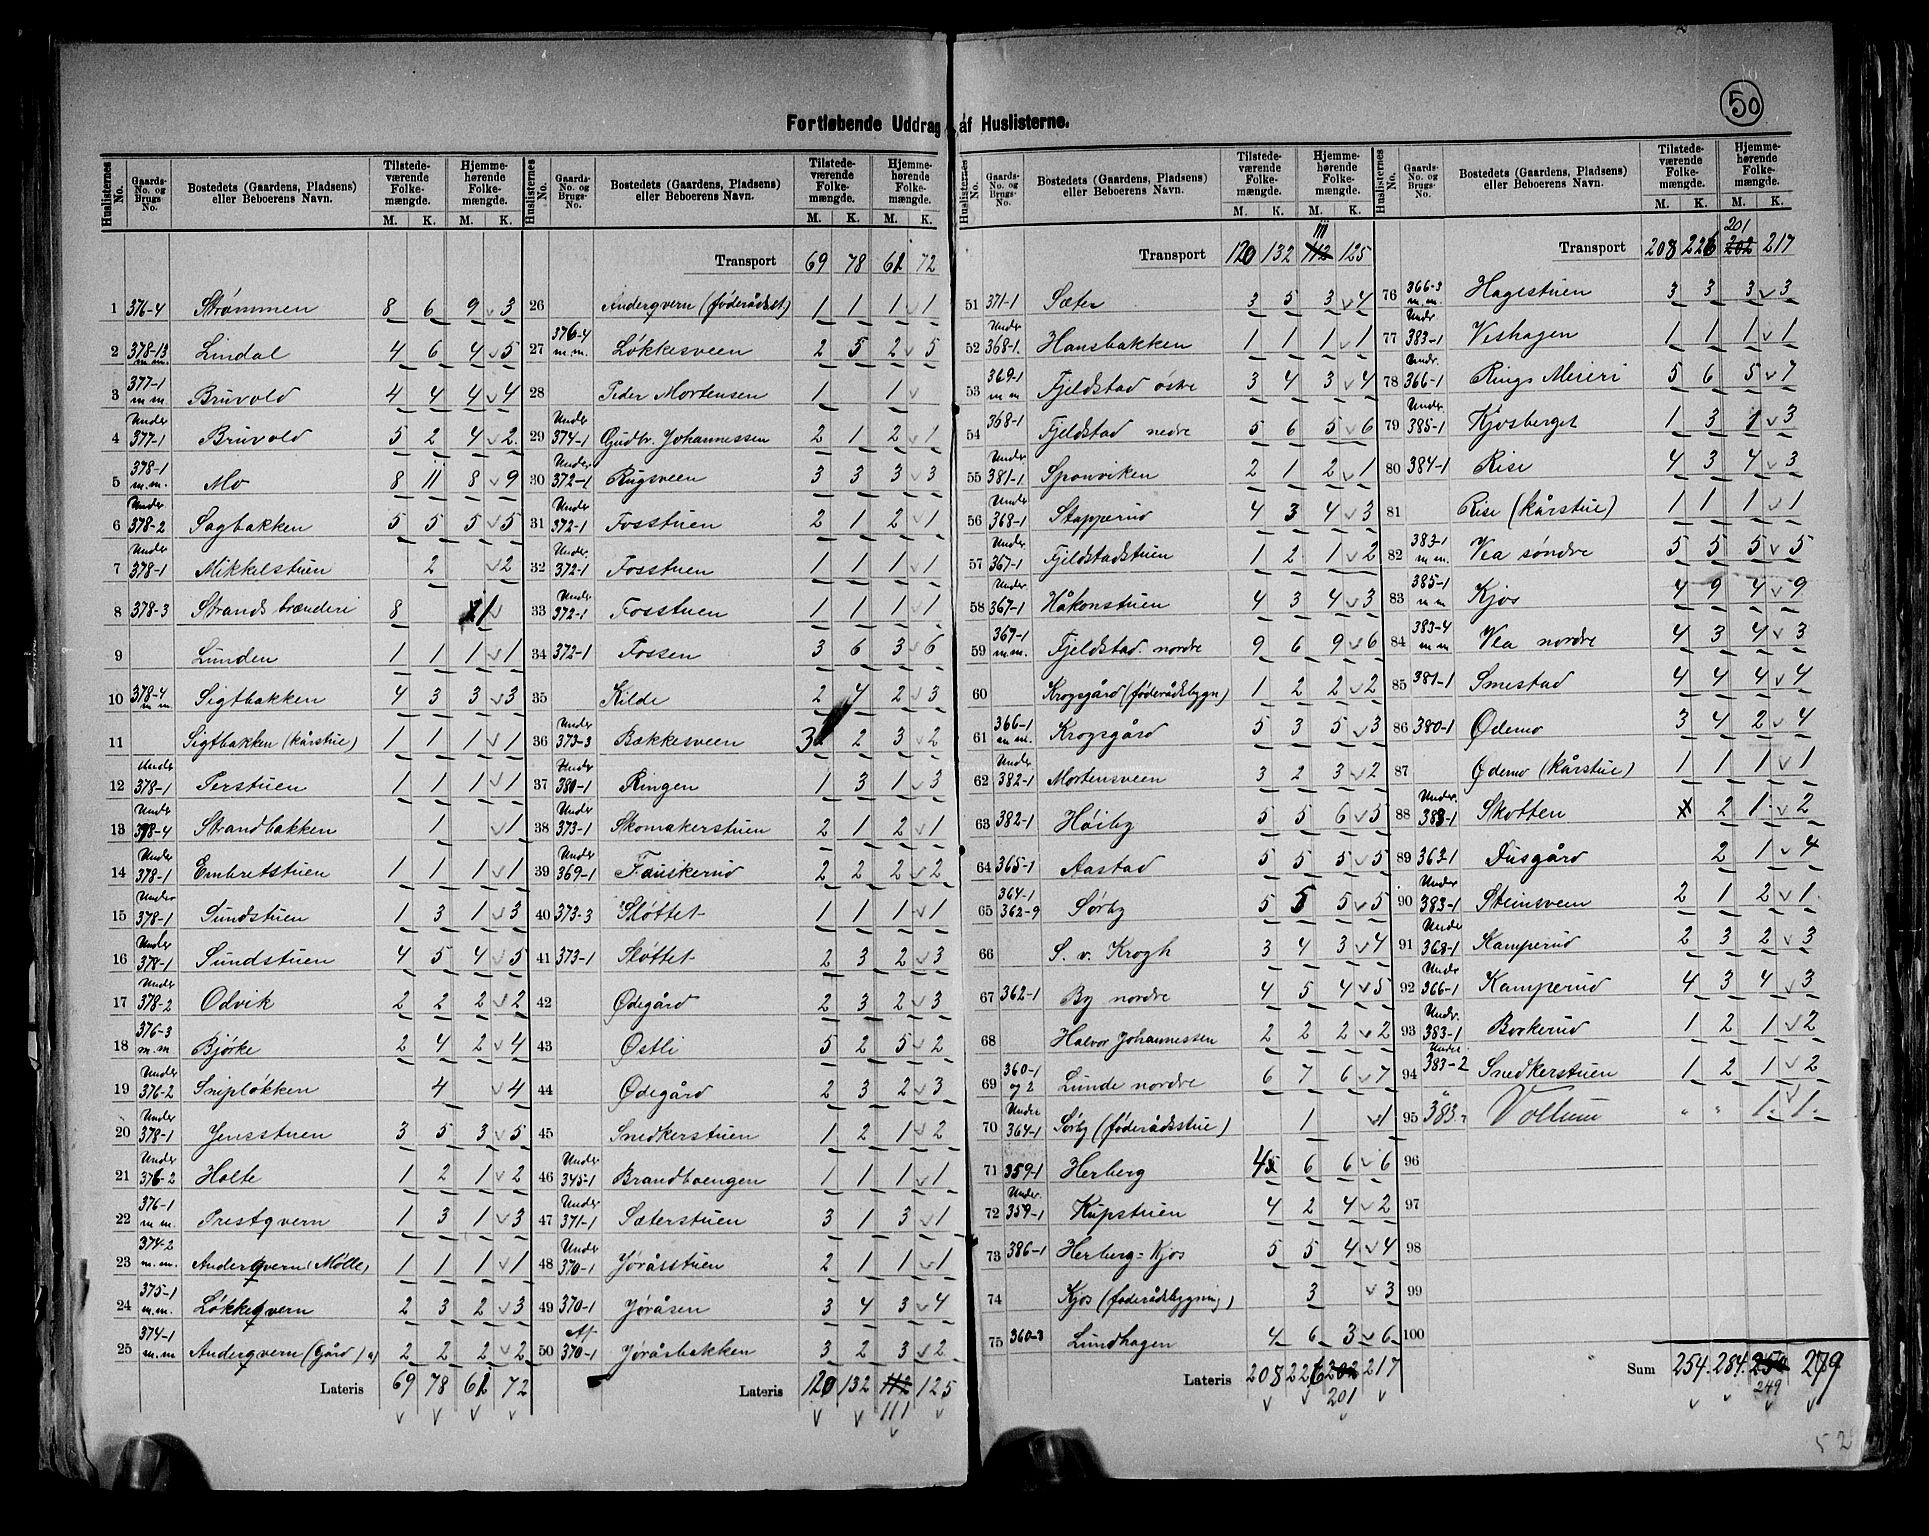 50
Fortløbende Uddrag af Huslisterne.
Huslisternes No. Gaards-No. og Brugs-No. Bostedets (Gaardens, Pladsens) eller Beboerens Navn. Tilstedeværende Folkemængde. M. K. Hjemmehørende Folkemængde. M. K.
1 376-4 Strømmen 8 6 9 3
2 378-13 m.m. Lindal 4 6 4 5
3 377-1 m.m. Bruvold 4 4 4 4
4 Under 377-1 Bruvold 5 2 4 2
5 378-1 m.m. Mo 8 11 8 9
6 Under 378-2 Sagbakken 5 5 5 5
7 Under 378-1 Mikkelstuen 2 2
8 378-3 Strands brænderi 8 1
9 Lunden 1 1 1 1
10 378-4 m.m. Sigtbakken 4 3 3 3
11 Sigtbakken (kårstue) 1 1 1 1
12 Under 378-1 Perstuen 1 1 1 1
13 Under 378-4 Strandbakken 1 1
14 Under 378-1 Embretstuen 1 1 1 1
15 Under 378-1 Sundstuen 1 3 1 3
16 Under 378-1 Sundstuen 4 5 4 5
17 Under 378-2 Odvik 2 2 2 2
18 376-3 m.m Bjørke 2 4 2 4
19 Under 376-2 Snipløkken 4 4
20 Under 378-1 Jensstuen 3 5 3 5
21 Under 376-2 Holte 1 2 1 2
22 376-1 m.m. Prestqvern 1 3 1 3
23 374-2 m.m. Anderqvern (Mølle) 1 1 1 1
24 375-1 m.m. Løkkeqvern 2 3 2 3
25 374-1 m.m Anderqvern (Gård) a) 2 2 2 2
Lateris 69 78 61 72
Huslisternes No. Gaards-No. og Brugs-No. Bostedets (Gaardens, Pladsens) eller Beboerens Navn. Tilstedeværende Folkemængde. M. K. Hjemmehørende Folkemængde. M. K.
Transport 69 78 61 72
26 Anderqvern (føderådsst) 1 1 1 1
27 376-4 m.m. Løkkesveen 2 5 2 5
28 Peder Mortensen 1 1
29 Under 374-1 Gudbr. Johannessen 2 1 2 1
30 Under 372-1 Rugsveen 3 3 3 3
31 Under 372-1 Fosstuen 2 1 2 1
32 Under 372-1 Fosstuen 1 1 1 1
33 Under 372-1 Fosstuen 1 1 1 1
34 372-1 Fossen 3 6 3 6
35 Kilde 2 4 2 3
36 Under 373-3 Bækkesveen 3 2 3 2
37 Under 380-1 Ringen 1 3 1 3
38 Under 373-1 Skomakerstuen 2 1 2 1
39 Under 369-1 Fauskerud 2 2 2 2
40 373-3 Sløttet 1 1 1 1
41 373-1 Sløttet 2 3 2 3
42 Ødegård 2 3 2 3
43 Østli 5 2 5 2
44 Ødegård 2 3 2 3
45 Snedkerstuen 1 2 1 2
46 Under 345-1 Brandvoengen 1 1 1 1
47 Under 371-1 Sæterstuen 3 1 3 1
48 Under 370-1 Jøråsstuen 2 1 1 1
49 370-1 Jøråsen 3 4 3 4
50 Af 370-1 Jøråsbakken 3 2 3 2
Lateris 120 132 112 125
111
Huslisternes No. Gaards-No. og Brugs-No. Bostedets (Gaardens, Pladsens) eller Beboerens Navn. Tilstedeværende Folkemængde. M. K. Hjemmehørende Folkemængde. M. K.
111
Transport 120 132 112 125
51 371-1 Sæter 3 5 3 4
52 Under 368-1. Hansbakken 1 1 1 1
53 369-1 m m Fjeldstad østre 3 4 3 4
54 368-1 Fjeldstad nedre 5 6 5 6
55 Under 381-1 Sponviken 2 1 2 1
56 Under 368-1 Stapperud 4 3 4 3
57 Under 367-1 Fjeldstadstuen 1 2 1 2
58 Under 367-1 Håkonstuen 4 3 4 3
59 367-1 m.m. Fjeldstad nordre 9 6 9 6
60 Krogsgård (føderådsbygn) 1 2 2 2
61 366-1 m.m. Krogsgård 5 3 5 3
62 Under 382-1 Mortensveen 3 2 3 2
63 382-1 Høiby 5 5 6 5
64 365-1 Aastad 5 5 5 5
65 364-1 362-9 Sørby 5 5 5 5
66 S. v. Krogh 3 4 3 4
67 362-1 By nordre 4 5 4 5
68 Halvor Johannessen 2 2 2 2
69 360-1 og 2 Lunde nordre 6 7 6 7
70 Under 364-1 Sørby (føderådsstue) 1 1
71 359-1 Herberg 4 6 6 6
72 Under 359-1 Kupstuen 4 2 4 2
73 386-1 Herberg-Kjos 5 5 4 4
74 Kjos (føderådsbygning) 3 3
75 360-3 Lundhagen 4 6 3 6
Lateris 208 226 202 217
201
Huslisternes No. Gaards-No. og Brugs-No. Bostedets (Gaardens, Pladsens) eller Beboerens Navn. Tilstedeværende Folkemængde. M. K. Hjemmehørende Folkemængde. M. K.
201
Transport 208 226 202 217
76 366-3 m.m. Hagestuen 3 3 3 3
77 Under 383-1 Veshagen 1 1 1 1
78 Under 366-1 Rings Meieri 5 6 5 7
79 Under 385-1 Kjosberget 1 3 1 3
80 384-1 Rise 4 3 4 3
81 Rise (kårstue) 1 1 1 1
82 383-1 m.m. Vea søndre 5 5 5 5
83 385-1 m m Kjos 4 9 4 9
84 383-4 m m Vea nordre 4 3 4 3
85 381-1 Smestad 4 4 4 4
86 380-1 Ødemo 3 4 2 4
87 Ødemo (kårstue) 1 1 1 1
88 Under 383-1 Skotten 2 1 2
89 363-1 Dusgård 2 1 4
90 Under 383-1 Steinsveen 2 1 2 1
91 Under 368-1 Kamperud 2 3 2 3
92 Under 366-1 Kamperud 4 3 4 3
93 Under 383-1 Borkerud 1 2 1 2
94 Under 383-2 Snedkerstuen 1 2 1 2
95 383- Vollum " " 1. 1.
96
97
98
99
100
Sum 254. 284. 250 279
249
52